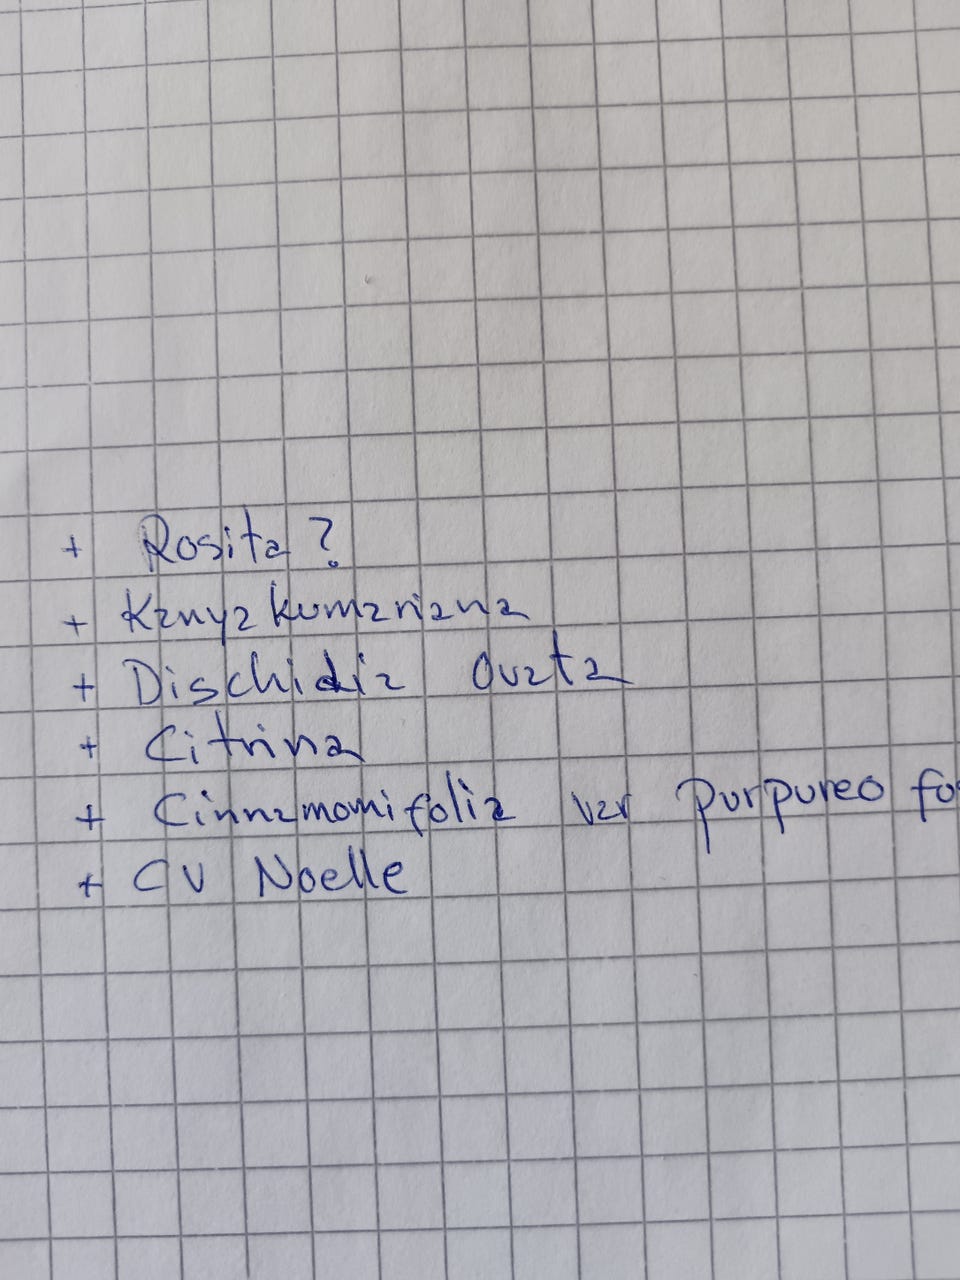 + Rosita ?
+ Kanyakumariana
+ Dischidia Ovata
+ Citrina
+ Cinnamomifolia var purpureo fo
+ CV Noelle